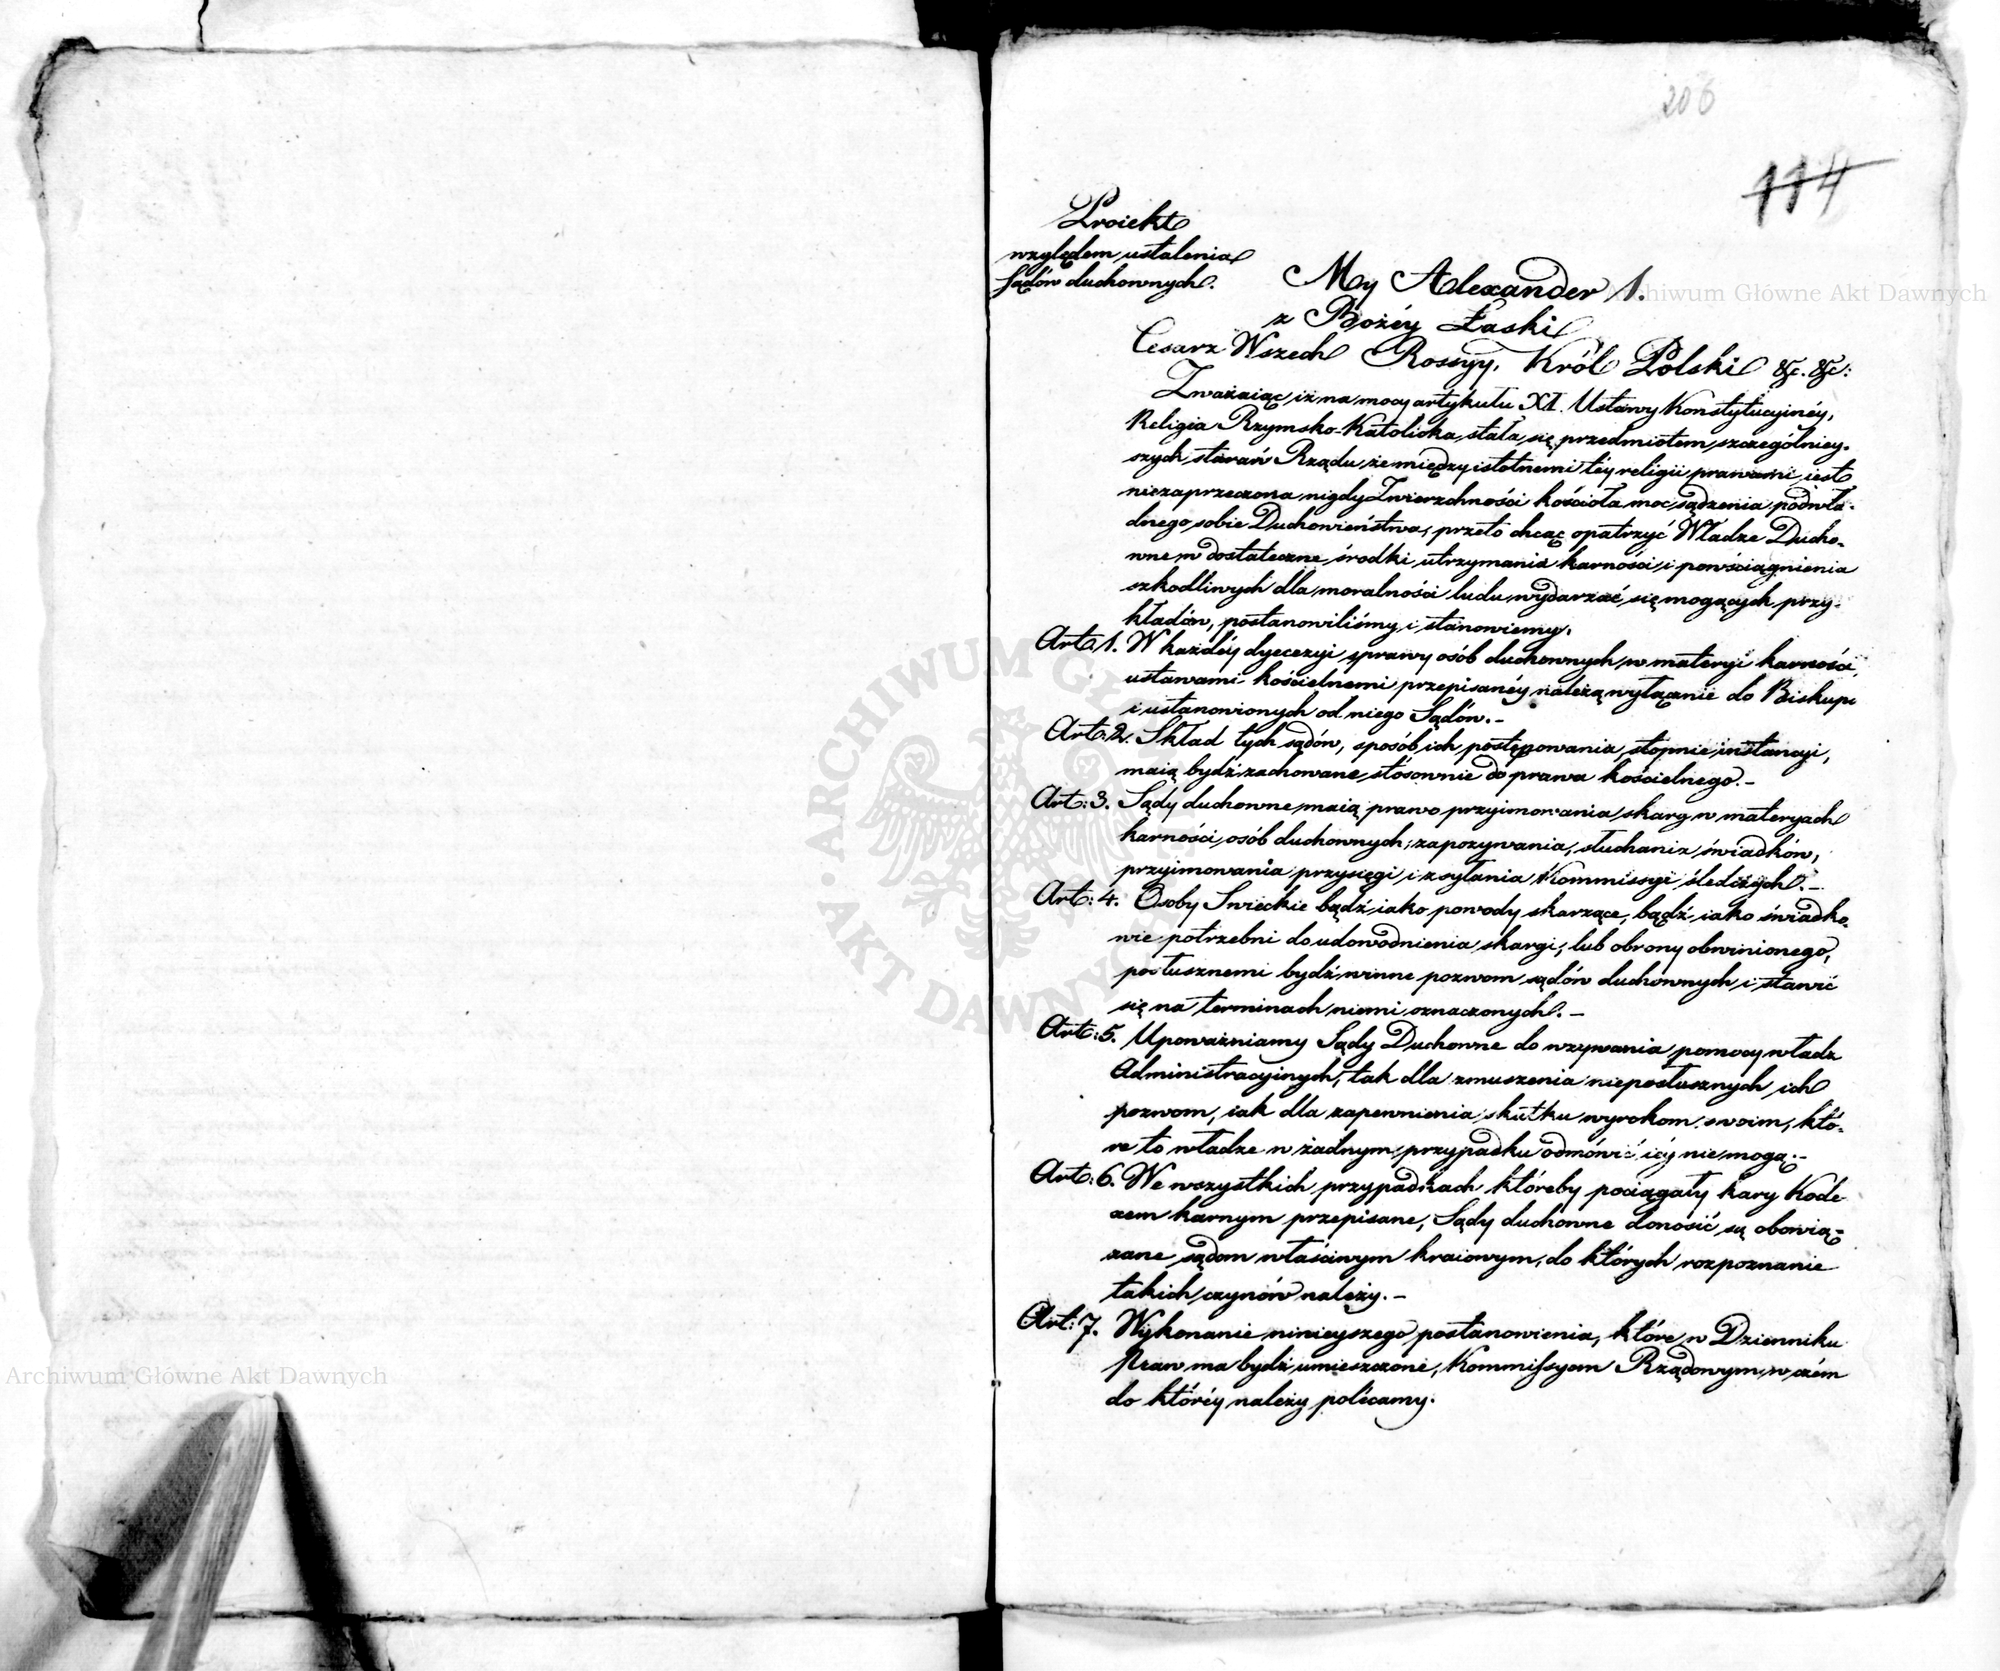 206
114
Proiekt
względem ustalenia
Sądów duchownych.
My Alexander 1.
z Bożéy Łaski
Cesarz Wszech Rossyy, Król Polski &c. &c:
Zważaiąc iż na mocy artykułu XI. Ustawy Konstytucyinéy,
Religia Rzymsko-Katolicka stała się przedmiotem szczególniey-
szych starań Rządu, że między istotnemi téy religii prawami iest
niezaprzeczona nigdy Zwierzchności kościoła moc sądzenia podwła-
dnego sobie Duchowieństwa, przeto chcąc opatrzyć Władze Ducho-
wne w dostateczne środki utrzymania karności i powściągnienia
szkodliwych dla moralności ludu wydarzać się mogących przy-
kładów, postanowiliśmy i stanowiemy.
Art: 1. W każdéy dyecezyi sprawy osób duchownych w materyi karności
ustawami kościelnemi przepisanéy należą wyłącznie do Biskupa
i ustanowionych od niego Sądów.-
Art: 2. Skład tych sądów, sposób ich postępowania, stopnie instancyi,
maią bydź zachowane stósownie do prawa kościelnego.-
Art: 3. Sądy duchowne maią prawo przyimowania skarg w materyach
karności osób duchownych, zapozywania, słuchania świadków,
przyimowania przysięgi i zsyłania Kommissyi śledczych.-
Art: 4. Osoby Swieckie bądź iako powody skarzące, bądź iako świadko-
wie potrzebni do udowodnienia skargi, lub obrony obwinionego,
posłusznemi bydź winne pozwom sądów duchownych i stawić
się na terminach niemi oznaczonych.-
Art: 5. Upoważniamy Sądy Duchowne do wzywania pomocy władz
Administracyinych, tak dla zmuszenia nieposłusznych ich
pozwom, iak dla zapewnienia skutku wyrokom swoim, któ-
re to władze w żadnym przypadku odmówić iéy nie mogą.-
Art: 6. We wszystkich przypadkach któreby pociągały kary Kode-
xem karnym przepisane, Sądy duchowne donosić są obowią-
zane sądom właściwym kraiowym, do których rozpoznanie
takich czynów należy.-
Art: 7. Wykonanie ninieyszego postanowienia, które w Dzienniku
Praw ma bydź umieszczone, Kommissyom Rządowym w czém
do któréy należy polécamy.
Archiwum Główne Akt Dawnych
Archiwum Główne Akt Dawnych